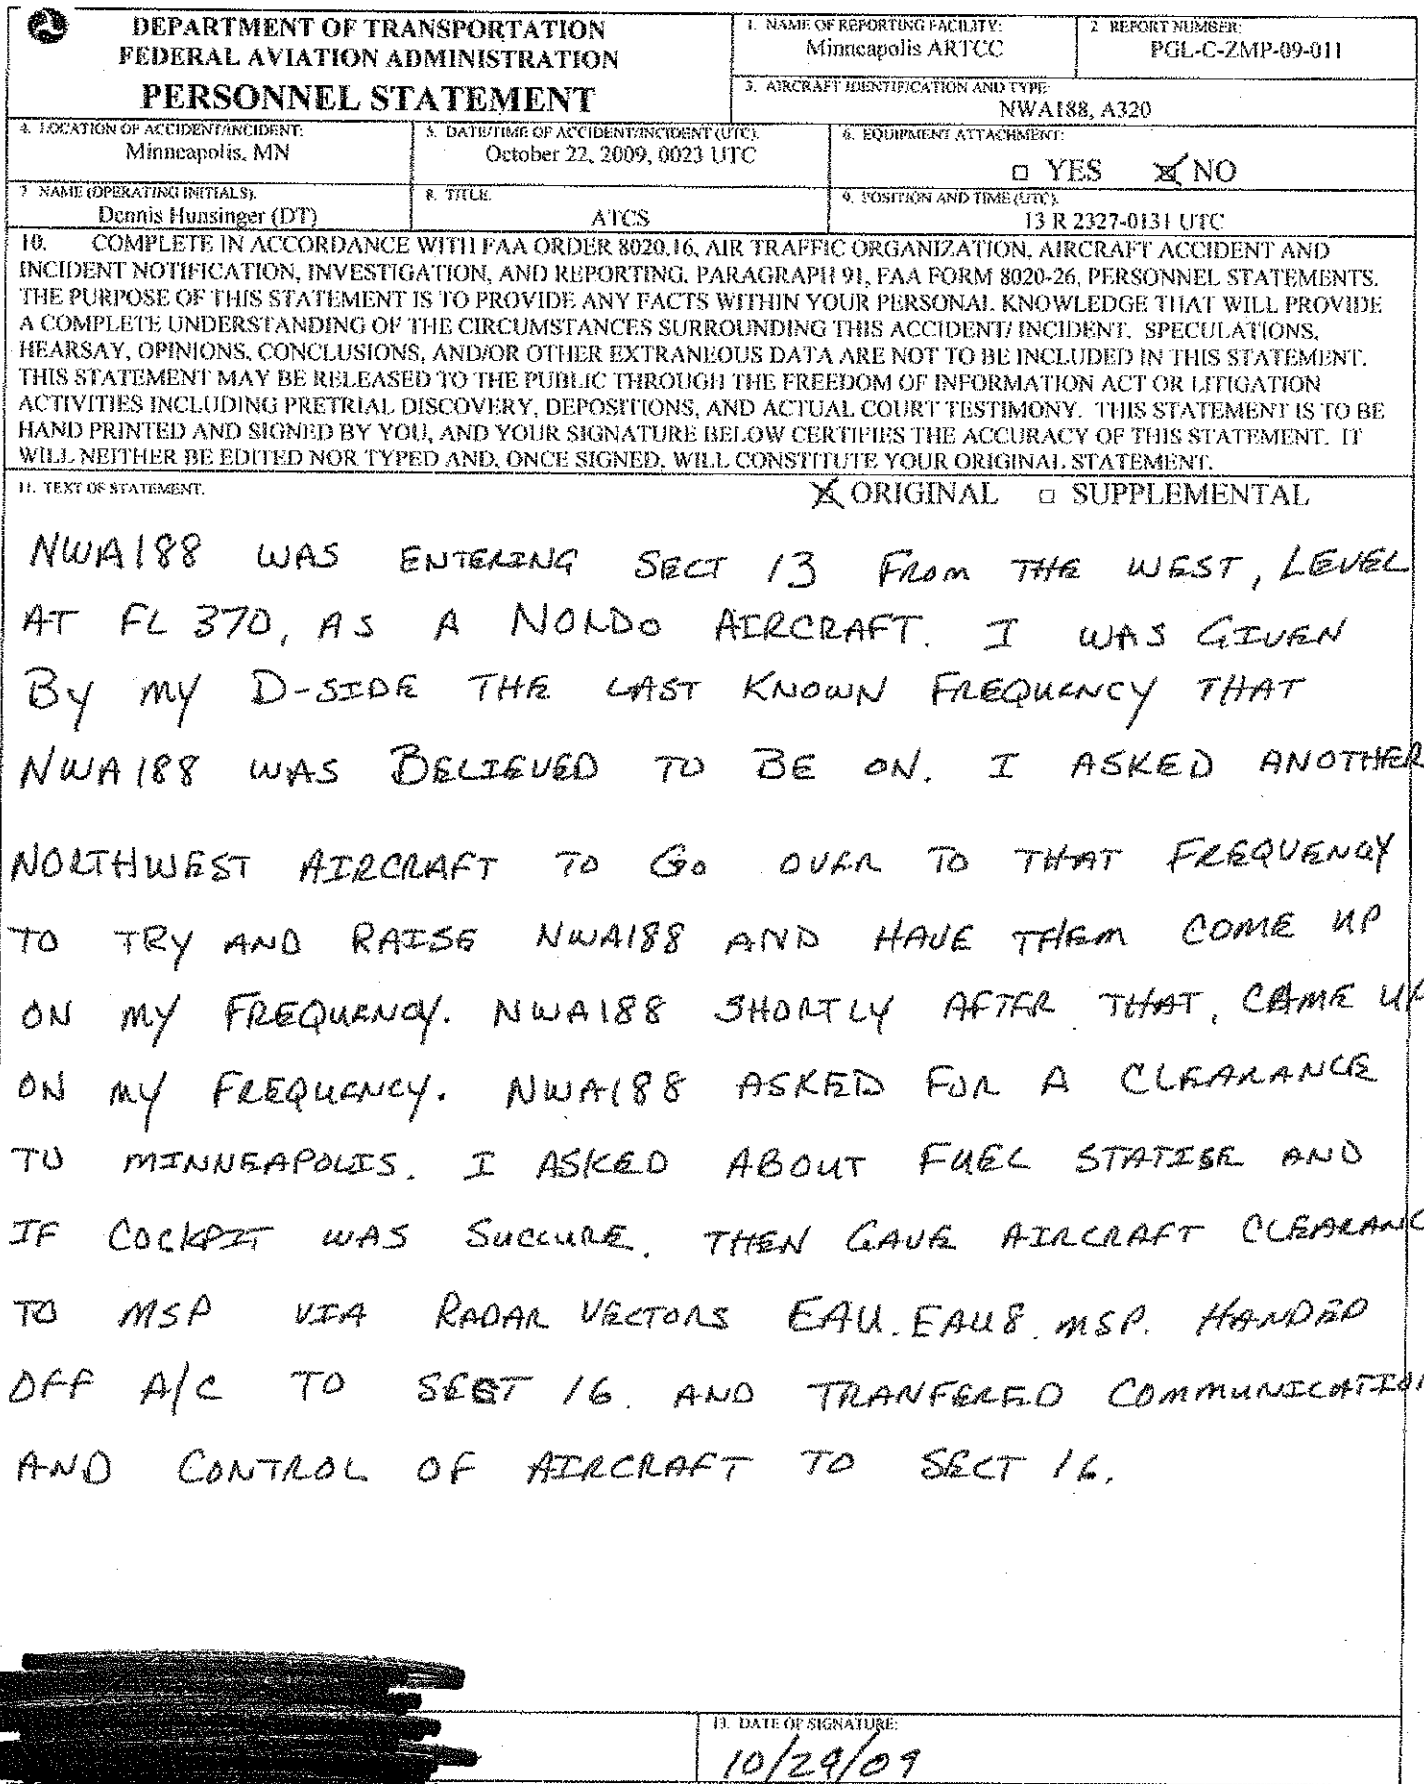 DEPARTMENT OF TRANSPORTATION
FEDERAL AVIATION ADMINISTRATION
PERSONNEL STATEMENT
1. NAME OF REPORTING FACILITY:
Minneapolis ARTCC
2 REPORT NUMBER:
PGL-C-ZMP-09-011
3. AIRCRAFT IDENTIFICATION AND TYPE:
NWA188, A320
4. LOCATION OF ACCIDENT/INCIDENT:
Minneapolis, MN
5. DATE/TIME OF ACCIDENT/INCIDENT (UTC).
October 22, 2009, 0023 UTC
6. EQUIPMENT ATTACHMENT:
YES NO
7 NAME (OPERATING INITIALS).
Dennis Hunsinger (DT)
8. TITLE.
ATCS
9. POSITION AND TIME (UTC).
13 R 2327-0131 UTC
10. COMPLETE IN ACCORDANCE WITH FAA ORDER 8020.16, AIR TRAFFIC ORGANIZATION, AIRCRAFT ACCIDENT AND
INCIDENT NOTIFICATION, INVESTIGATION, AND REPORTING. PARAGRAPH 91, FAA FORM 8020-26, PERSONNEL STATEMENTS.
THE PURPOSE OF THIS STATEMENT IS TO PROVIDE ANY FACTS WITHIN YOUR PERSONAL KNOWLEDGE THAT WILL PROVIDE
A COMPLETE UNDERSTANDING OF THE CIRCUMSTANCES SURROUNDING THIS ACCIDENT/ INCIDENT. SPECULATIONS,
HEARSAY, OPINIONS, CONCLUSIONS, AND/OR OTHER EXTRANEOUS DATA ARE NOT TO BE INCLUDED IN THIS STATEMENT.
THIS STATEMENT MAY BE RELEASED TO THE PUBLIC THROUGH THE FREEDOM OF INFORMATION ACT OR LITIGATION
ACTIVITIES INCLUDING PRETRIAL DISCOVERY, DEPOSITIONS, AND ACTUAL COURT TESTIMONY. THIS STATEMENT IS TO BE
HAND PRINTED AND SIGNED BY YOU, AND YOUR SIGNATURE BELOW CERTIFIES THE ACCURACY OF THIS STATEMENT. IT
WILL NEITHER BE EDITED NOR TYPED AND, ONCE SIGNED, WILL CONSTITUTE YOUR ORIGINAL STATEMENT.
11. TEXT OF STATEMENT.
ORIGINAL SUPPLEMENTAL
NWA188 WAS ENTERING SECT 13 FROM THE WEST, LEVEL
AT FL 370, AS A NORDO AIRCRAFT. I WAS GIVEN
BY MY D-SIDE THE LAST KNOWN FREQUENCY THAT
NWA188 WAS BELIEVED TO BE ON. I ASKED ANOTHER
NORTHWEST AIRCRAFT TO GO OVER TO THAT FREQUENCY
TO TRY AND RAISE NWA188 AND HAVE THEM COME UP
ON MY FREQUENCY. NWA188 SHORTLY AFTER THAT, CAME UP
ON MY FREQUENCY. NWA188 ASKED FOR A CLEARANCE
TO MINNEAPOLIS. I ASKED ABOUT FUEL STATISE AND
IF COCKPIT WAS SUCCURE. THEN GAVE AIRCRAFT CLEARANC
TO MSP VIA RADAR VECTORS EAU.EAU8.MSP. HANDED
OFF A/C TO SECT 16. AND TRANFERED COMMUNICATION
AND CONTROL OF AIRCRAFT TO SECT 16.
13. DATE OF SIGNATURE:
10/29/09